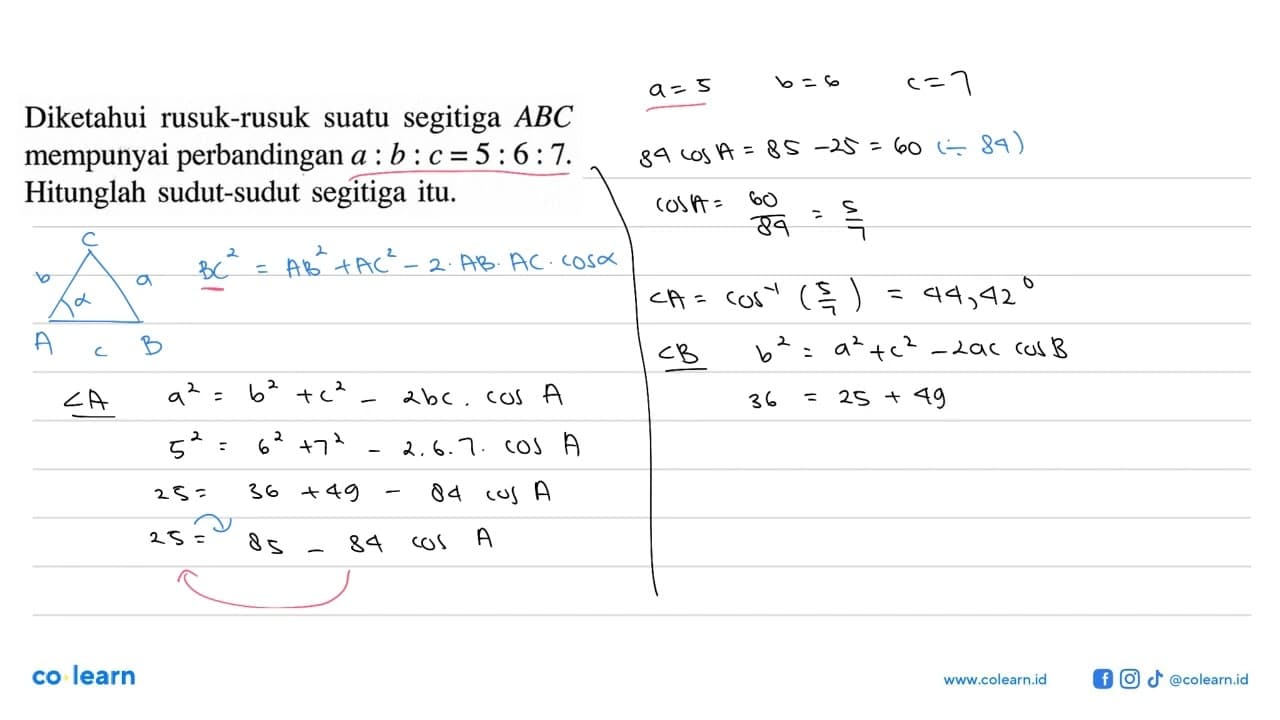 Diketahui rusuk-rusuk suatu segitiga ABC
mempunyai perbandingan a : b : c = 5 : 6 : 7.
Hitunglah sudut-sudut segitiga itu.
C
b
a
α
A
c
B
BC² = AB² + AC² - 2. AB. AC. cosα
<A a² = b² + c² - 2bc. cos A
5² = 6² + 7² - 2.6.7. cos A
25 = 36 + 49 - 84 cos A
25 = 85 - 84 cos A
a = 5 b = 6 c = 7
84 cos A = 85 - 25 = 60 (÷ 84)
cos A = 60/84 = 5/7
<A = cos⁻¹ (5/7) = 44,42°
<B b² = a² + c² - 2ac cos B
36 = 25 + 49
co learn
www.colearn.id
@colearn.id